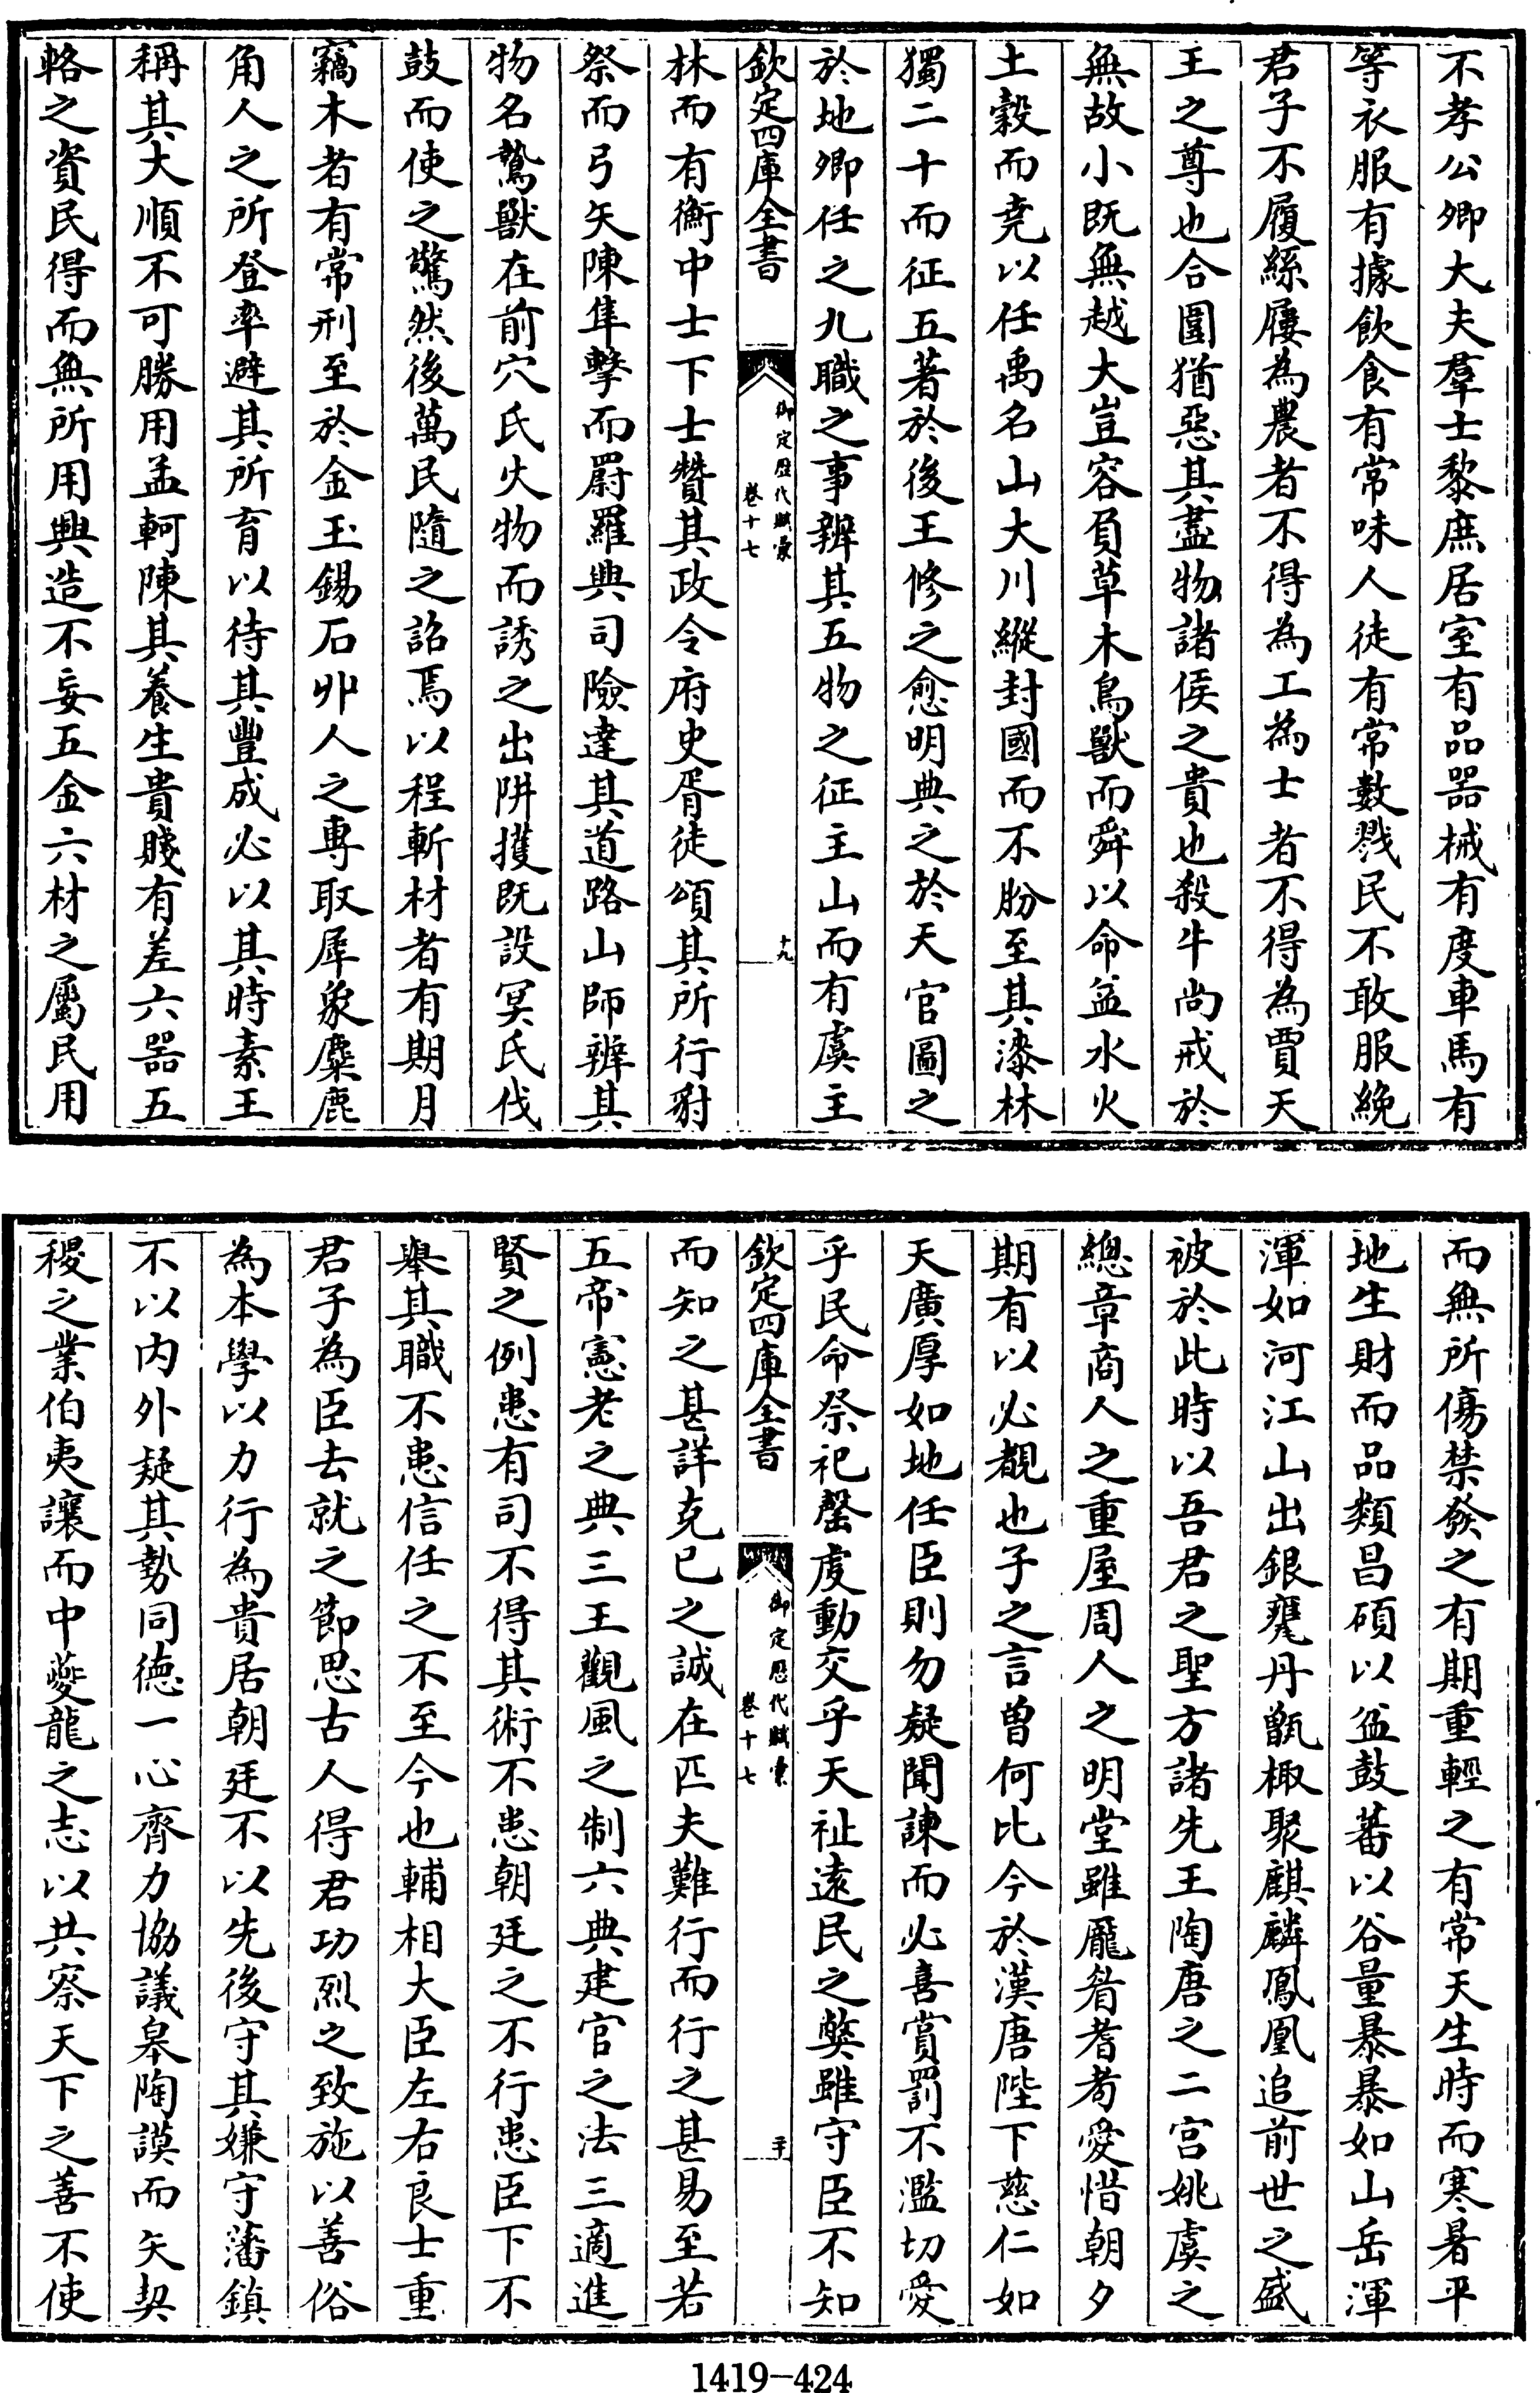 不孝公卿大夫羣士黎庶居室有品器械有度車馬有
等衣服有據飲食有常味人徒有常數戮民不敢服絻
君子不履絲屨為農者不得為工為士者不得為賈天
王之尊也合圍猶惡其盡物諸侯之貴也殺牛尚戒於
無故小既無越大豈容負草木鳥獸而舜以命益水火
土穀而堯以任禹名山大川縱封國而不肦至其漆林
獨二十而征五著於後王修之愈明典之於天官圖之
於地卿任之九職之事辨其五物之征主山而有虞主
欽定四庫全書
御定歷代賦彙
卷十七
十九
林而有衡中士下士贊其政令府史胥徒頌其所行豺
祭而弓矢陳隼擊而罻羅興司險達其道路山師辨其
物名鷙獸在前穴氏火物而誘之出阱擭既設冥氏伐
鼓而使之驚然後萬民隨之詔焉以程斬材者有期月
竊木者有常刑至於金玉錫石丱人之專取犀象麋鹿
角人之所登率避其所育以待其豐成必以其時素王
稱其大順不可勝用孟軻陳其養生貴賤有差六器五
輅之資民得而無所用興造不妄五金六材之屬民用
而無所傷禁發之有期重輕之有常天生時而寒暑平
地生財而品類昌碩以盆鼓蕃以谷量暴暴如山岳渾
渾如河江山出銀甕丹甑棷聚麒麟鳳凰追前世之盛
被於此時以吾君之聖方諸先王陶唐之二宮姚虞之
總章商人之重屋周人之明堂雖龎眉耆耇愛惜朝夕
期有以必覩也子之言曾何比今於漢唐陛下慈仁如
天廣厚如地任臣則勿疑聞諫而必喜賞罰不濫切愛
乎民命祭祀罄虔動交乎天祉遠民之獘雖守臣不知
欽定四庫全書
御定歷代賦彙
卷十七
二十
而知之甚詳克已之誠在匹夫難行而行之甚易至若
五帝憲老之典三王觀風之制六典建官之法三適進
賢之例患有司不得其術不患朝廷之不行患臣下不
舉其職不患信任之不至今也輔相大臣左右良士重
君子為臣去就之節思古人得君功烈之致施以善俗
為本學以力行為貴居朝廷不以先後守其嫌守藩鎮
不以內外疑其勢同德一心齊力協議皋陶謨而矢契
稷之業伯夷讓而中夔龍之志以共察天下之善不使
1419-424